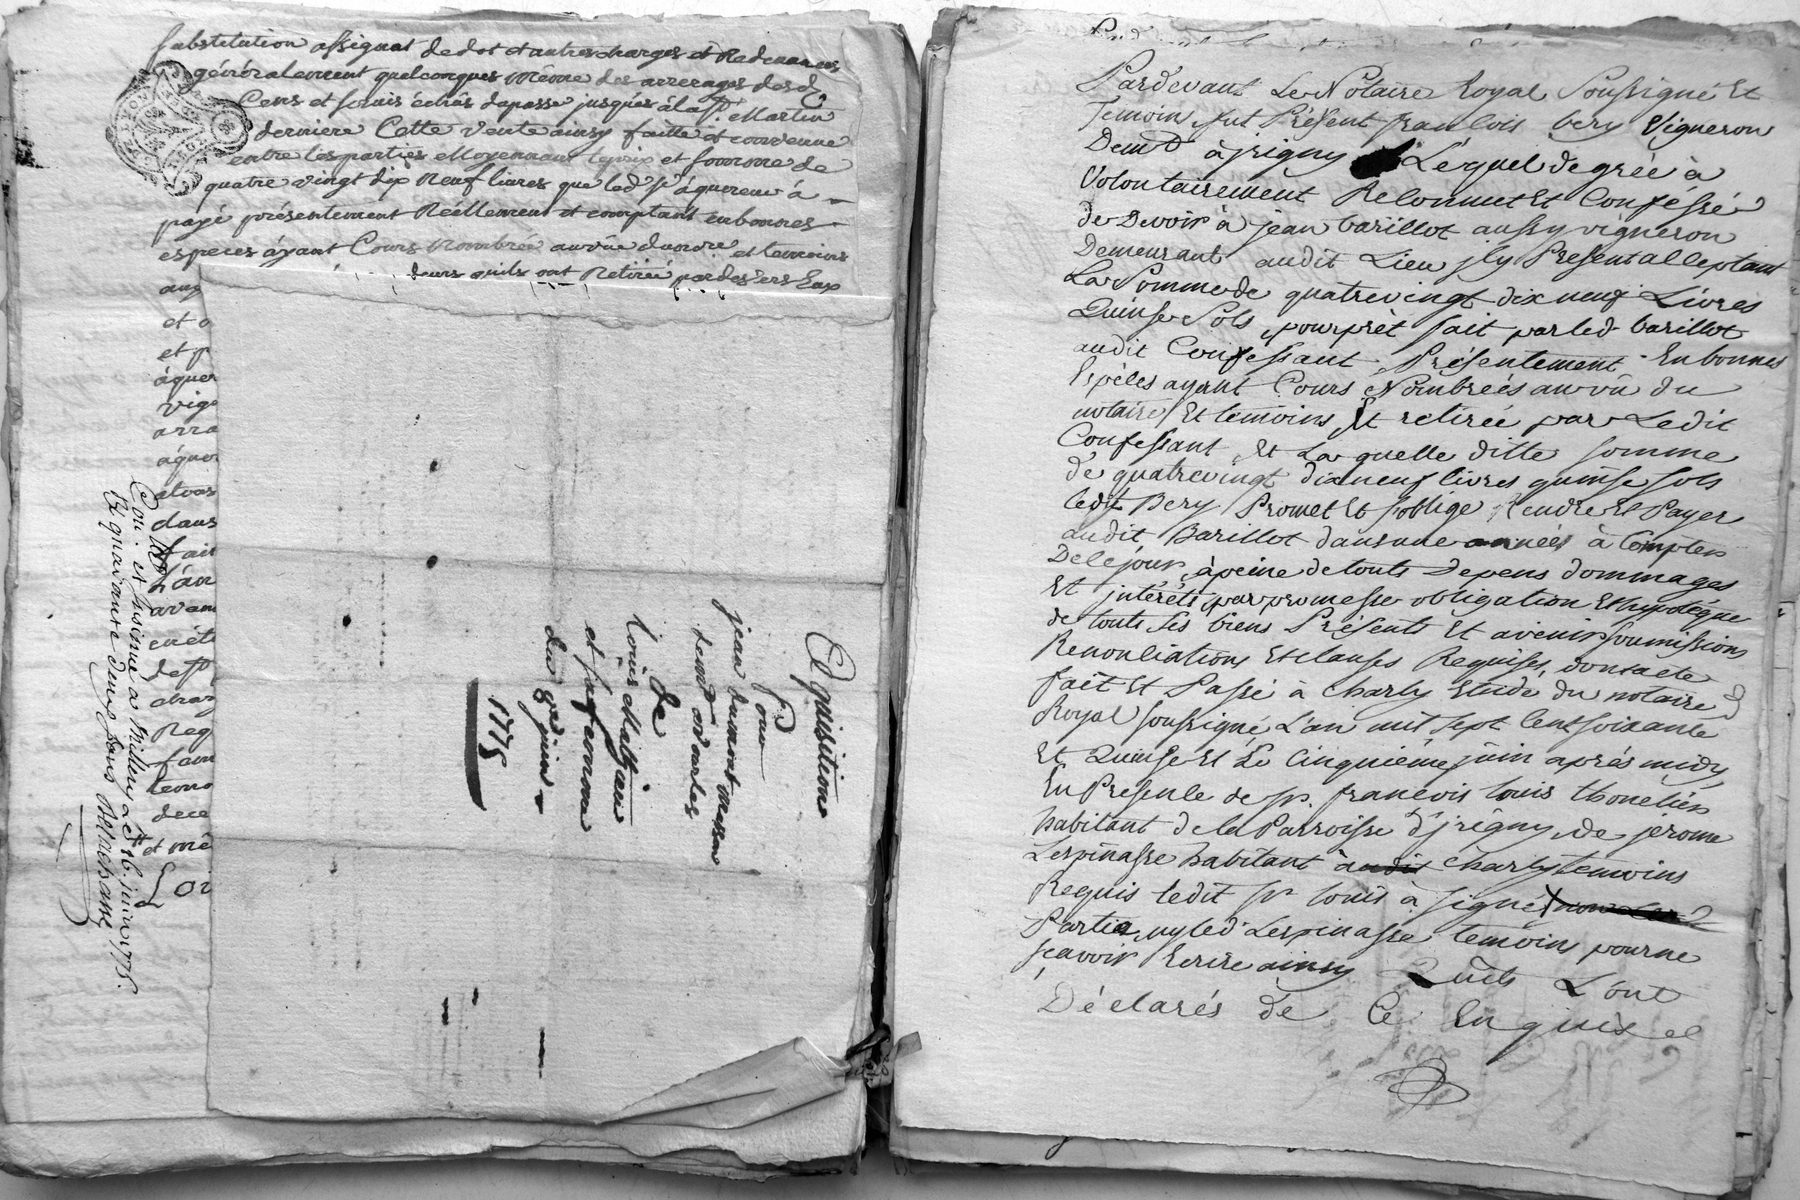 substitution assignat de dot et autres charges et Redevances
généralement quelconques même des arrerages desd
Cens et servis échûs du passé jusques à la St. Martin
derniere Cette vente ainsy faitte et convenue
entre les parties Moyennant le prix et somme de
quatre vingt dix neuf livres que led Sr. aquereur à
payé présentement Réellement et comptant en bonnes
especes ayant Cours Nombrée au vûe du no.re et temoins
deurs quils ont Retirée par devers Eux
et
et p
aquer
vign
arra
aquer
dans
fait
L'an
avant
en ét
desp
char
Reg
fam
temo
dece
et mê
Loi
Con. et insinué a Millery le 16. juin 1775.
Rt. quarante deux sous
Aquisition
Pour
jean dumont masson
demt a vourles
de
Louis Mathieu
et sa femme
du 8e juin
1775
Pardevant Le Notaire Royal Soussigné Et
Temoins fut Présent francois bery Vigneron
Demt à jrigny Lequel de gré à
Volontairement Reconnut Et Confessé
de Devoir à jean barillot aussy vigneron
Demeurant audit Lieu jly Présent acceptant
La Somme de quatrevingt dix neuf Livres
Quinse Sols pour prêt fait par led barillot
audit Confessant Présentement En bonnes
Espèces ayant Cours Nombreés au vû du
notaire Et temoins Et retirée par Ledit
Confessant Et La quelle ditte somme
de quatrevingt dixneuf livres quinse sols
ledt Bery Promet Et soblige Rendre Et Payer
audit Barillot dans une année à Compter
De ce jour à peine de touts Depens dommages
Et jntérêts par promesse obligation Et hypotéque
de touts ses biens Présents Et avenir soumissions
Renonciations Et clauses Requises, dont acte
fait Et Passé à Charly Etude du notaire
Royal soussigné L'an mil sept Cent soixante
Et Quinse Et Le Cinquième juin aprés midy
En Présence de Sr. francois louis thonelier
habitant de la Parroisse d'jrigny, de jérome
Lespinasse habitant audit Charly temoins
Requis ledit Sr louis à signé non Les
Parties ny led Lespinasse temoins pour ne
sçavoir Ecrire ainsy Quils L'ont
Déclarés de Ce Enquis et